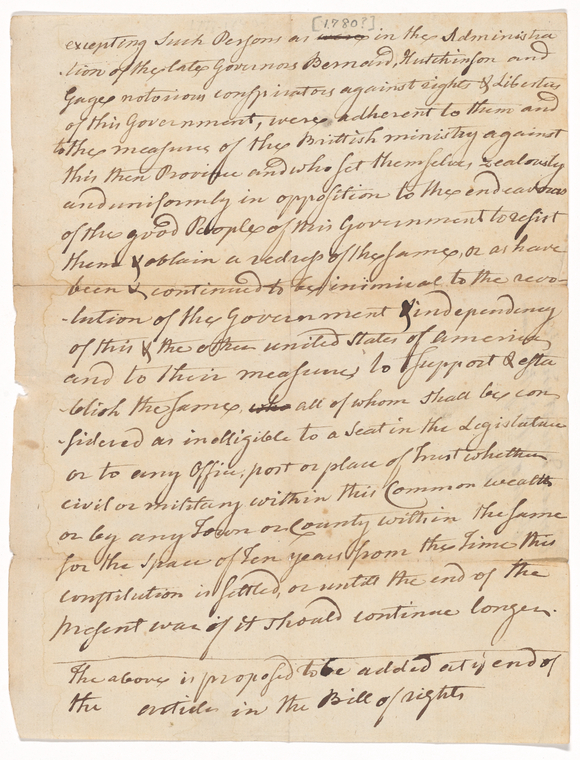 [1780?]
excepting Such Persons as were in the Administra
tion of the late Governors Bernard, Hutchinson and
Gage notorious conspirators against rights & Liberties
of this Government, were adherent to them and
to the measures of the Brittish ministry against
this then Province and who set themselves zealously
and uniformly in opposition to the endeavours
of the good People of this Government to resist
them & obtain a redress of the same, or as have
been & continued to be inimical to the revo-
-lution of the Government & independency
of this & the other united states of america
and to their measures to support & esta
blish the same, who all of whom shall be con
-sidered as inelligible to a Seat in the Legislature
or to any Office, post or place of Trust whether
civil or military within this Common wealth
or by any Town or County within the same
for the Space of Ten years from the Time this
constitution is settled, or untill the end of the
present war if it should continue longer.
The above is proposed to be added at ye end of
the articles in the Bill of rights